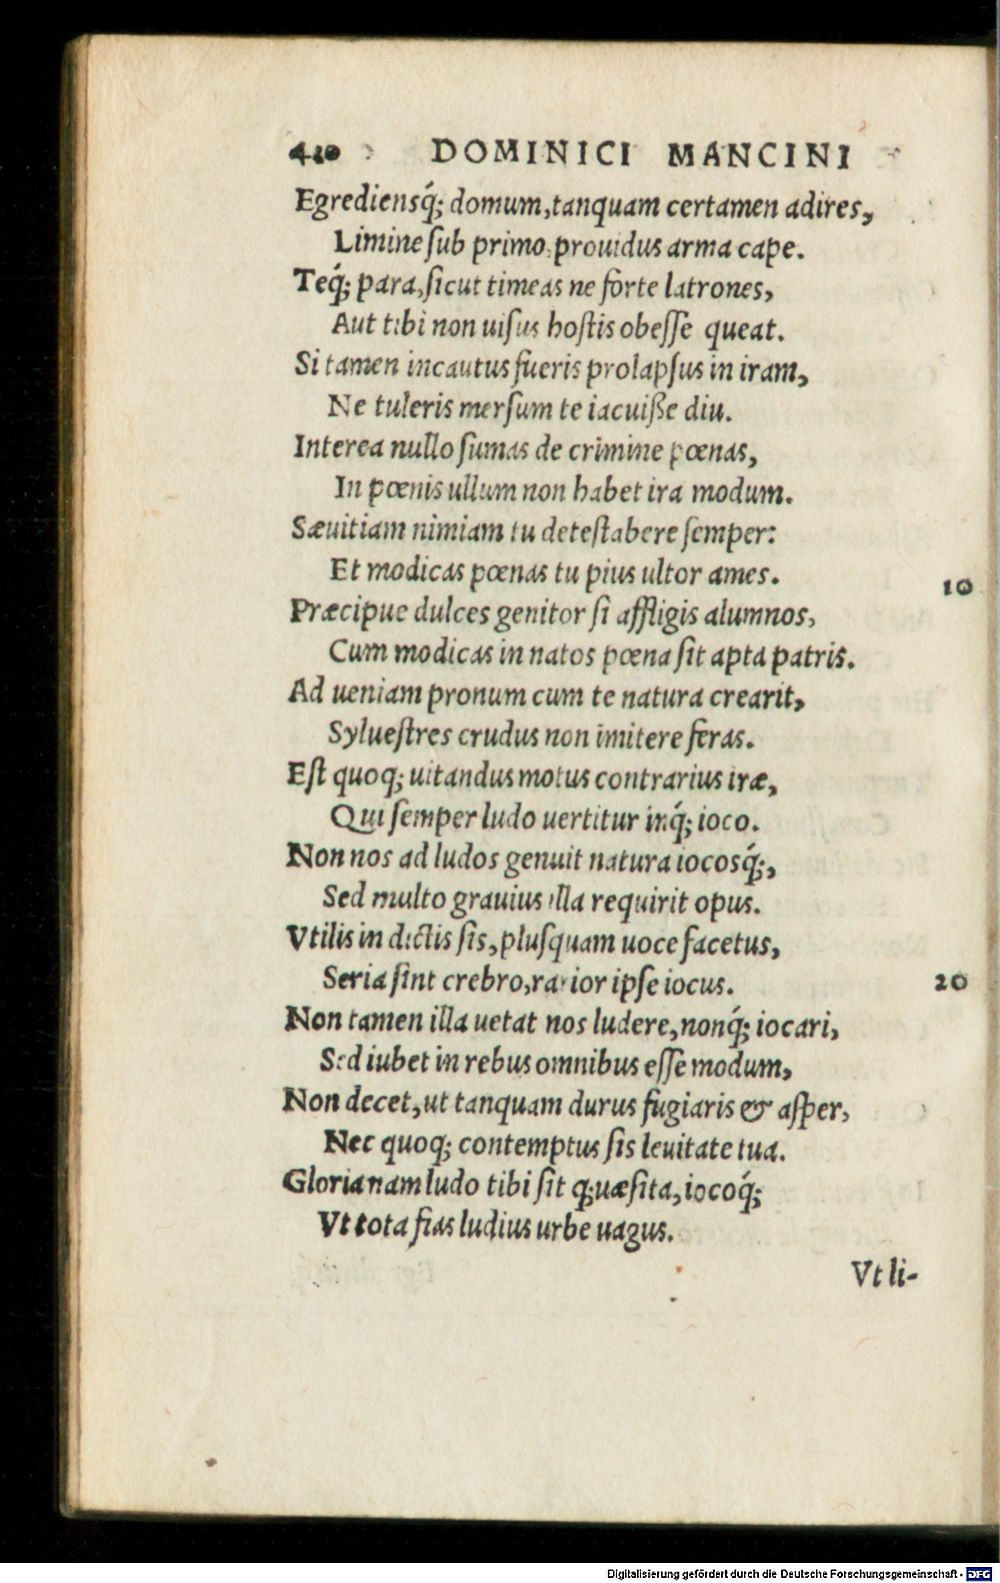 410 DOMINICI MANCINI
Egrediensq́; domum, tanquam certamen adires,
Limine ſub primo prouidus arma cape.
Teq́; para, ſicut timeas ne forte latrones,
Aut tibi non uiſus hoſtis obeſſe queat.
Si tamen incautus fueris prolapſus in iram,
Ne tuleris merſum te iacuiſſe diu.
Interea nullo ſumas de crimine pœnas,
In pœnis ullum non habet ira modum.
Sæuitiam nimiam tu deteſtabere ſemper:
Et modicas pœnas tu pius ultor ames.
10
Præcipue dulces genitor ſi affligis alumnos,
Cum modicas in natos pœna ſit apta patris.
Ad ueniam pronum cum te natura crearit,
Sylueſtres crudus non imitere feras.
Eſt quoq; uitandus motus contrarius iræ,
Qui ſemper ludo uertitur inq́; ioco.
Non nos ad ludos genuit natura iocosq́;,
Sed multo grauius illa requirit opus.
Vtilis in dictis ſis, pluſquam uoce facetus,
Seria ſint crebro, rarior ipſe iocus.
20
Non tamen illa uetat nos ludere, nonq́; iocari,
Sed iubet in rebus omnibus eſſe modum,
Non decet, ut tanquam durus fugiaris & aſper,
Nec quoq; contemptus ſis leuitate tua.
Gloria nam ludo tibi ſit q;uæſita, iocoq́;
Vt tota fias ludius urbe uagus.
Vt li-
Digitalisierung gefördert durch die Deutsche Forschungsgemeinschaft - DFG